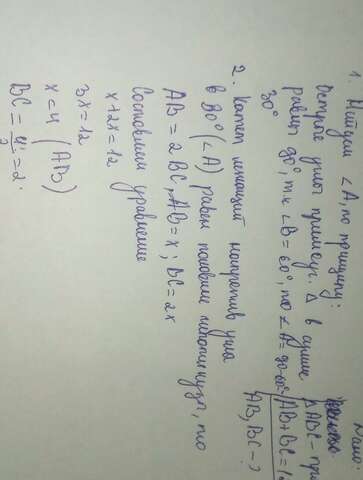 Дано:
△ABC - пря
AB+BC=1
AB, BC - ?
1. Найдем ∠A, по принципу:
Острые углы прямоуг. △ в сумме
равны 90°, т.к ∠B = 60°, то ∠A=90-60=
30°
2. Катет лежащий напротив угла
в 30° (∠A) равен половине гипотенузы, то
AB = 2 BC, AB=x; BC=2x
Составляем уравнение
x+2x=12
3x=12
x=4 (AB)
BC = 4/2 = 2.